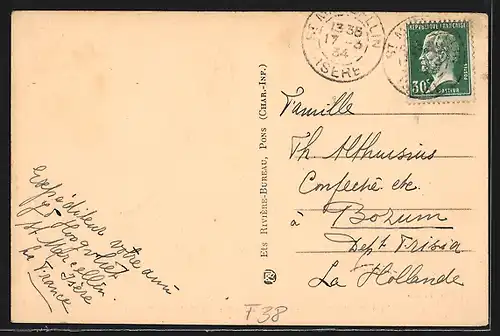 ST MARCELLIN
13 35
17-3
34
ISÈRE
RÉPUBLIQUE FRANÇAISE
30c
POSTES
PASTEUR
Famille
Th Althuisius
Confectie etc
à Bozum
Dept Frisia
La Hollande
Ets RIVIÈRE-BUREAU, PONS (CHAR.-INF.)
Expéditeur votre ami
St Marcellin
Isère
La France
F38